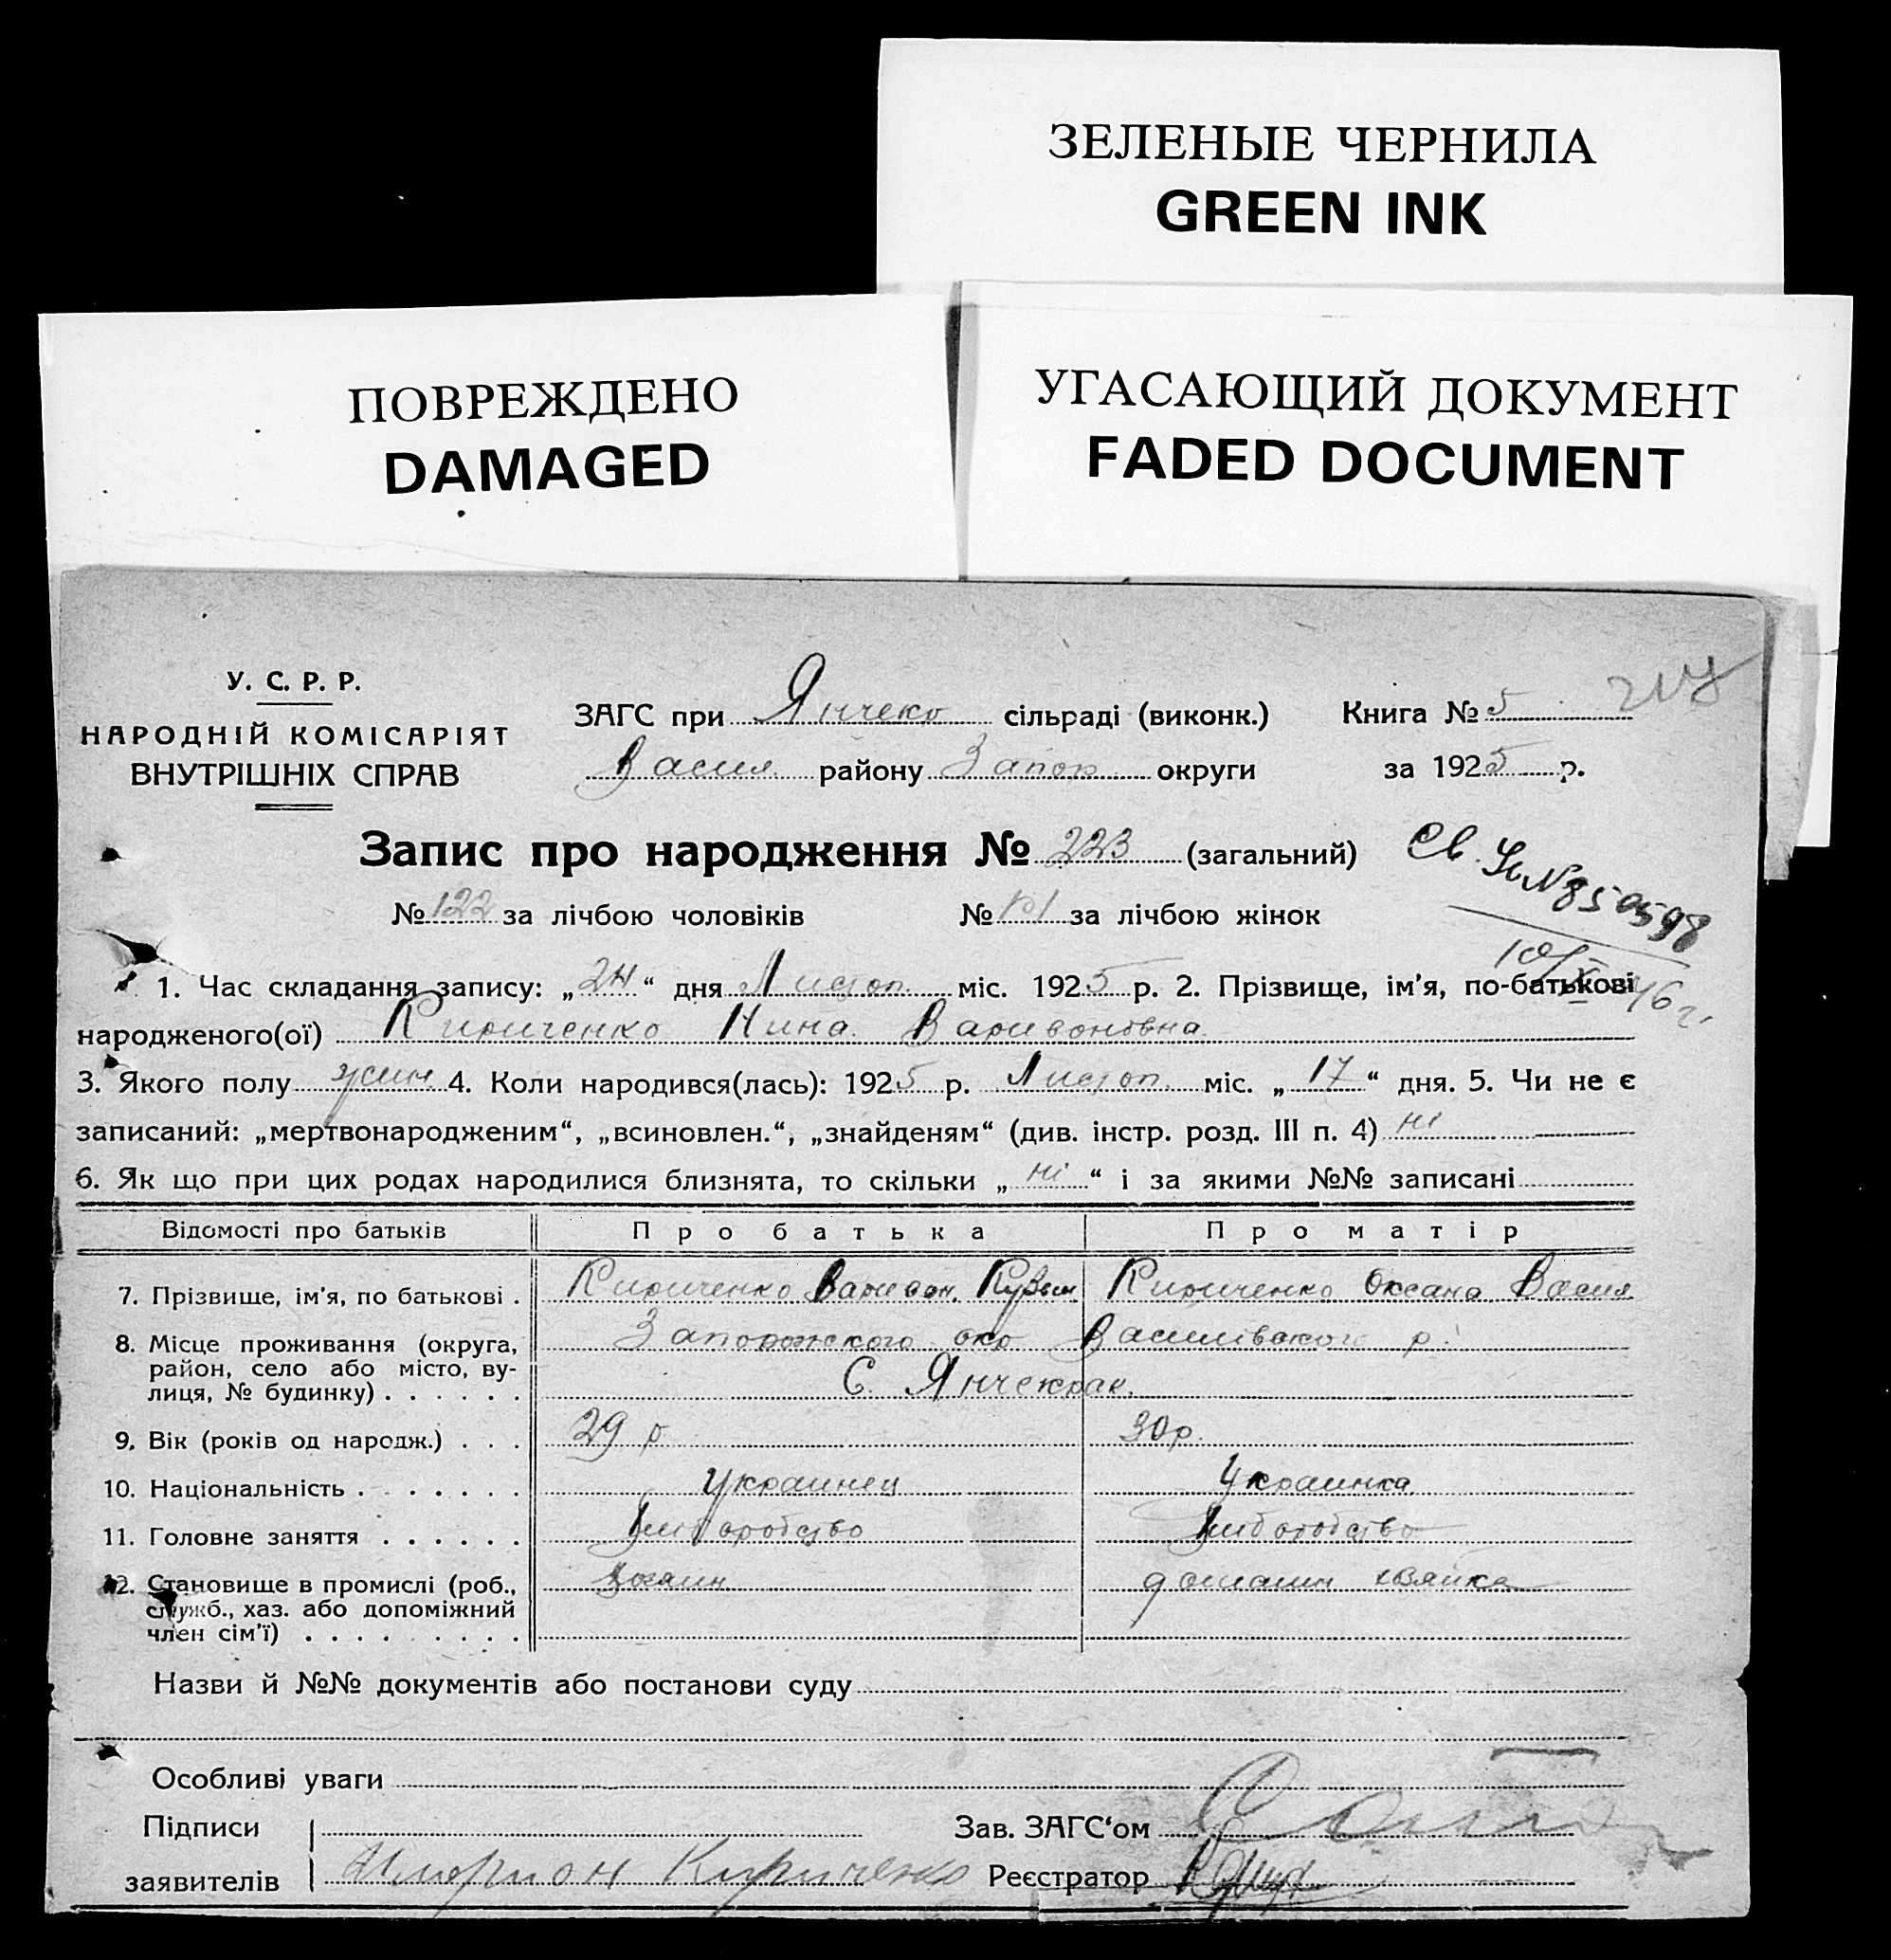 ЗЕЛЕНЫЕ ЧЕРНИЛА
GREEN INK
ПОВРЕЖДЕНО
DAMAGED
УГАСАЮЩИЙ ДОКУМЕНТ
FADED DOCUMENT
У. С. Р. Р.
НАРОДНІЙ КОМІСАРІЯТ
ВНУТРІШНІХ СПРАВ
ЗАГС при Янчеко сільраді (виконк.)
Васил району Запор округи
Книга № 5
за 1925 р.
Запис про народження № 223 (загальний)
№ 122 за лічбою чоловіків № 101 за лічбою жінок
Св. № 850598
1. Час складання запису: „24“ дня Листоп міс. 1925 р. 2. Прізвище, ім'я, по-батькові
народженого(ої) Кириченко Нина Варивоновна
3. Якого полу жин 4. Коли народився(лась): 1925 р. Листоп міс. „17“ дня. 5. Чи не є
записаний: „мертвонародженим“, „всиновлен.“, „знайденям“ (див. інстр. розд. III п. 4) ні
6. Як що при цих родах народилися близнята, то скільки „ні“ і за якими №№ записані
Відомості про батьків Про батька Про матір
7. Прізвище, ім'я, по батькові . Кириченко Варивон Кузьм Кириченко Оксана Васил
8. Місце проживання (округа, Запорожского окр Василівского р.
район, село або місто, ву-
лиця, № будинку) . . . . . . С. Янчекрак
9. Вік (років од народж.) . . . 29 р 30 р.
10. Національність . . . . . . . Украинец Украинка
11. Головне заняття . . . . . . Хлиборобство Хлиборобство
12. Становище в промислі (роб., Хозаин домашн хазяйка
служб., хаз. або допоміжний
член сім'ї) . . . . . . . . .
Назви й №№ документів або постанови суду
Особливі уваги
Підписи
заявителів Кириченко
Зав. ЗАГС'ом
Реєстратор